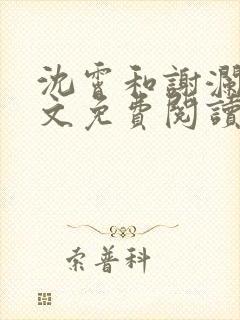 沈霄和謝瀾
文免費閱讀
索普科